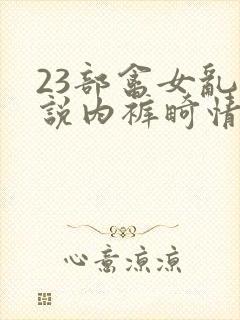 23部畲女乱
說内裤畸情
心意凉凉